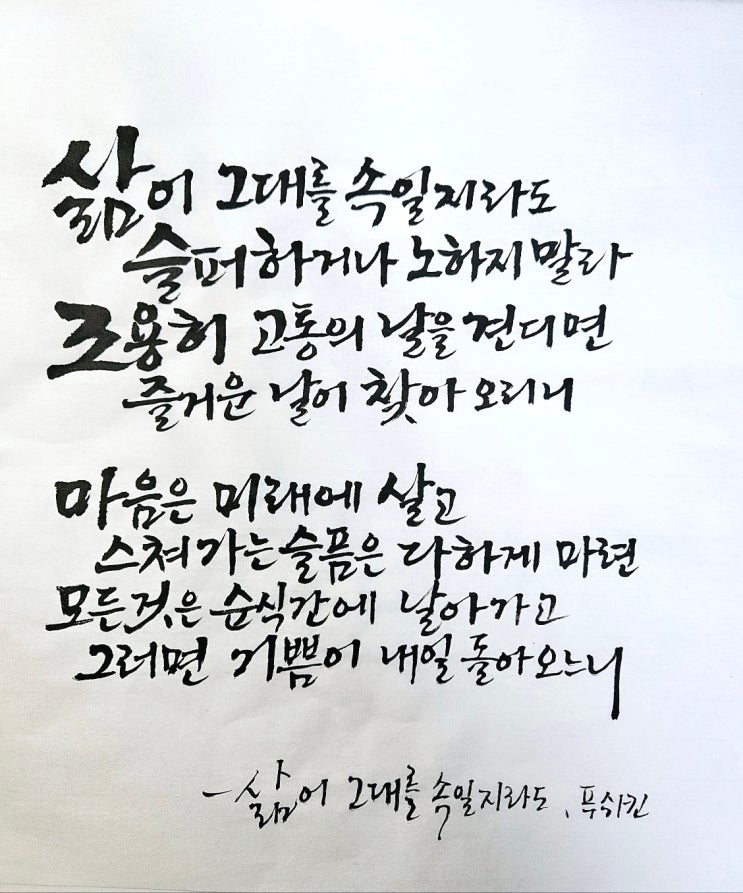 삶이 그대를 속일지라도
슬퍼하거나 노하지 말라
조용히 고통의 날을 견디면
즐거운 날이 찾아 오리니
마음은 미래에 살고
스쳐가는 슬픔은 다하게 마련
모든것은 순식간에 날아가고
그러면 기쁨이 내일 돌아오느니
-삶이 그대를 속일지라도, 푸쉬킨